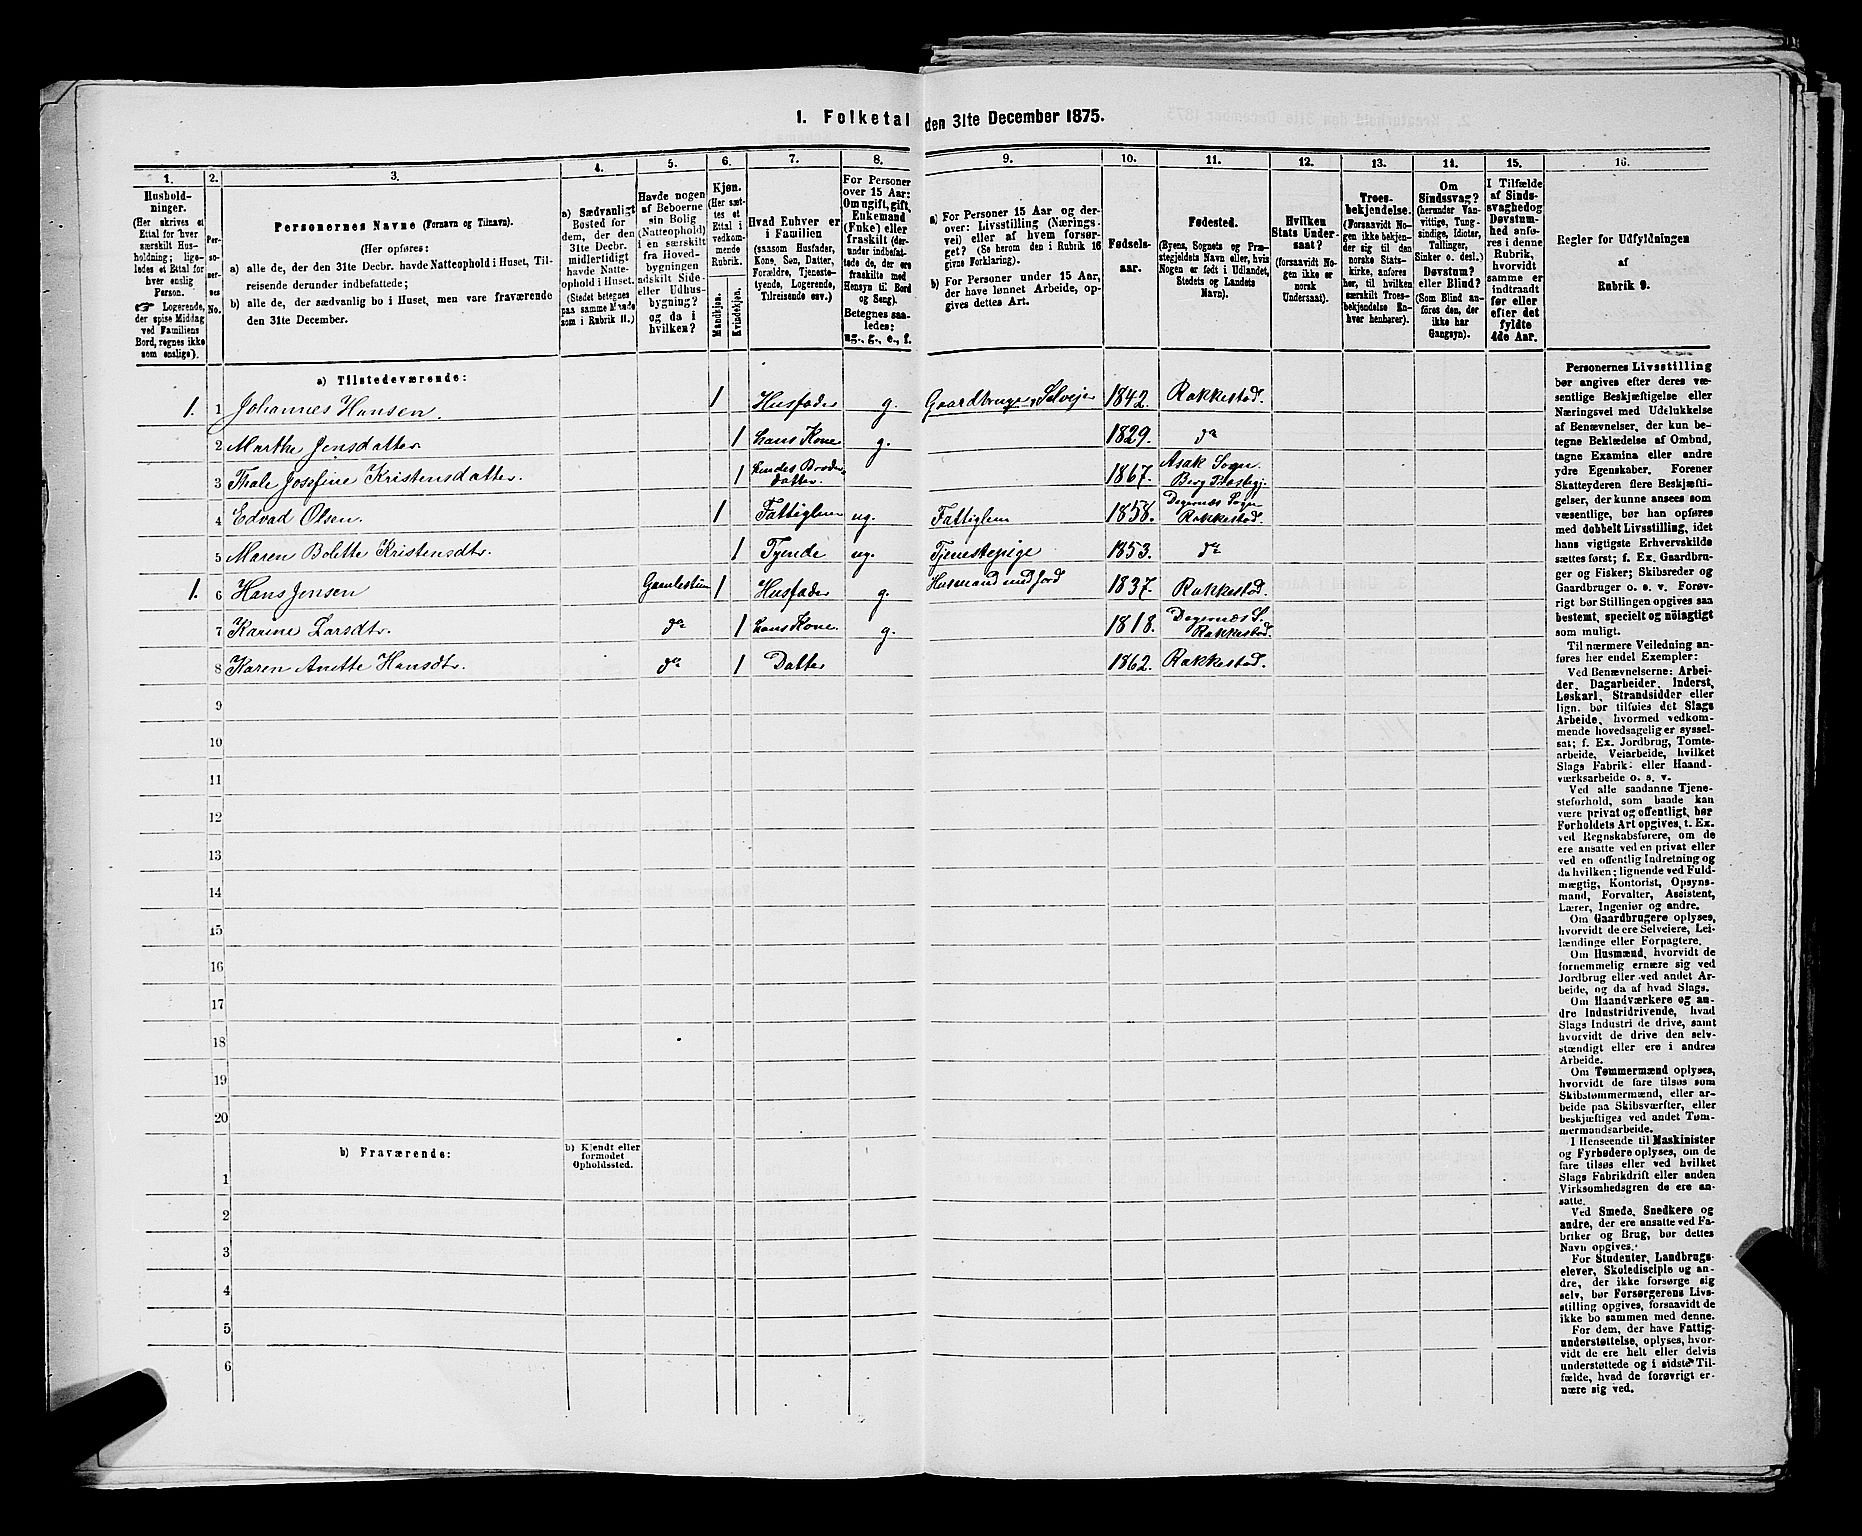 1. Folketal den 31te December 1875.
1.
2.
3.
4.
5.
6.
7.
8.
9.
10.
11.
12.
13.
14.
15.
16.
Hushold-
ninger.
(Her skrives et
Ettal for hver
særskilt Hus-
holdning; lige-
ledes et Ettal for
hver enslig
Person.
☞ Logerende,
der spise Middag
ved Familiens
Bord, regnes ikke
som enslige).
Personernes No.
Personernes Navne (Fornavn og Tilnavn).
(Her opføres:
a) alle de, der den 31te Decbr. havde Natteophold i Huset, Til-
reisende derunder indbefattede;
b) alle de, der sædvanlig bo i Huset, men vare fraværende
den 31te December.
a) Sædvanligt
Bosted for
dem, der den
31te Decbr.
midlertidigt
havde Natte-
ophold i Huset.
(Stedet betegnes
paa samme Maade
som i Rubrik 11.)
Havde nogen
af Beboerne
sin Bolig
(Natteophold)
i en særskilt
fra Hoved-
bygningen
adskilt Side-
eller Udhus-
bygning?
og da i
hvilken?
Kjøn.
(Her sæt-
tes et
Ettal i
vedkom-
mende
Rubrik.
Mandkjøn.
Kvindekjøn.
Hvad Enhver er
i Familien
(saasom Husfader,
Kone, Søn, Datter,
Forældre, Tjeneste-
tyende, Logerende,
Tilreisende osv.)
For Personer
over 15 Aar:
Om ugift, gift,
Enkemand
(Enke) eller
fraskilt (der-
under indbefat-
tede de, der ere
fraskilte med
Hensyn til Bord
og Seng).
Betegnes saa-
ledes:
ug., g., e., f.
a) For Personer 15 Aar og der-
over: Livsstilling (Nærings-
vei) eller af hvem forsør-
get? (Se herom den i Rubrik 16
givne Forklaring).
b) For Personer under 15 Aar,
der have lønnet Arbeide, op-
gives dettes Art.
Fødsels-
aar.
Fødested.
(Byens, Sognets og Præ-
stegjeldets Navn eller, hvis
Nogen er født i Udlandet,
Stedets og Landets
Navn).
Hvilken
Stats Under-
saat?
(forsaavidt No-
gen ikke er
norsk
Undersaat).
Troes-
bekjendelse.
(Forsaavidt No-
gen ikke bekjen-
der sig til den
norske Stats-
kirke, anføres
her, til hvilken
særskilt Troes-
bekjendelse En-
hver henhører).
Om
Sindssvag?
(herunder Van-
vittige, Tung-
sindige, Idioter,
Tullinger,
Sinker o. desl.)
Døvstum?
eller Blind?
(Som Blind an-
føres den, der
ikke har
Gangsyn).
I Tilfælde
af Sinds-
svaghed og
Døvstum-
hed anfø-
res i denne
Rubrik,
hvorvidt
samme er
indtraadt
før eller
efter det
fyldte
4de Aar.
Regler for Udfyldningen
af
Rubrik 9.
a) Tilstedeværende:
1. 1 Johannes Hansen 1 Husfader g. Gaardbruger, Selveier 1842. Rakkestad.
2 Marthe Jensdatter 1 hans Kone g. 1829. do
3 Thale Josefine Kristensdatter. 1 hendes Broder-
datter. 1867. Asak Sogn.
Berg Præstegj.
4 Edvad Olsen. 1 Fattiglem ug. Fattiglem 1858. Degernæs Sogn
Rakkestad.
5 Maren Bolette Kristensdtr. 1 Tyende ug. Tjenestepige 1853. do
1. 6 Hans Jensen Gamlestuen 1 Husfader g. Husmand med Jord 1837. Rakkestad.
7 Karine Larsdtr. do 1 hans Kone. g. 1818. Degernæs S.
Rakkestad.
8 Karen Anette Hansdtr. do 1 Datter 1862. Rakkestad.
9
10
11
12
13
14
15
16
17
18
19
20
b) Fraværende:
b) Kjendt eller
formodet
Opholdssted.
1
2
3
4
5
6
Personernes Livsstilling
bør angives efter deres væ-
sentlige Beskjæftigelse eller
Næringsvei med Udelukkelse
af Benævnelser, der kun be-
tegne Beklædelse af Ombud,
tagne Examina eller andre
ydre Egenskaber. Forener
Skatteyderen flere Beskjæfti-
gelser, der kunne ansees som
væsentlige, bør han opføres
med dobbelt Livsstilling, idet
hans vigtigste Erhvervskilde
sættes først; f. Ex. Gaardbru-
ger og Fisker; Skibsreder og
Gaardbruger o. s. v. Forøv-
rigt bør Stillingen opgives saa
bestemt, specielt og nöiagtigt
som muligt.
Til nærmere Veiledning an-
føres her endel Exempler:
Ved Benævnelserne: Arbei-
der, Dagarbeider, Inderst,
Løskarl, Strandsidder eller
lign. bør tilføies det Slags
Arbeide, hvormed vedkom-
mende hovedsagelig er syssel-
sat; f. Ex. Jordbrug, Tomte-
arbeide, Veiarbeide, hvilket
Slags Fabrik- eller Haand-
værksarbeide o. s. v.
Ved alle saadanne Tjene-
steforhold, som baade kan
være privat og offentligt, bør
Forholdets Art opgives, t. Ex.
ved Regnskabsførere, om de
ere ansatte ved en privat eller
ved en offentlig Indretning og
da hvilken; lignende ved Fuld-
mægtig, Kontorist, Opsyns-
mand, Forvalter, Assistent,
Lærer, Ingeniør og andre.
Om Gaardbrugere oplyses,
hvorvidt de ere Selveiere, Lei-
lændinge eller Forpagtere.
Om Husmænd, hvorvidt de
fornemmelig ernære sig ved
Jordbrug eller ved andet Ar-
beide, og da af hvad Slags.
Om Haandværkere og an-
dre Industridrivende, hvad
Slags Industri de drive, samt
hvorvidt de drive den selv-
stændigt eller ere i andres
Arbeide.
Om Tømmermænd oplyses,
hvorvidt de fare tilsøs som
Skibstømmermænd, eller ar-
beide paa Skibsværfter, eller
beskjæftiges ved andet Tøm-
mermandsarbeide.
I Henseende til Maskinister
og Fyrbødere oplyses, om de
fare tilsøs eller ved hvilket
Slags Fabrikdrift eller anden
Virksomhedsgren de ere an-
satte.
Ved Smede, Snedkere og
andre, der ere ansatte ved Fa-
briker og Brug, bør dettes
Navn opgives.
For Studenter, Landbrugs-
elever, Skoledisciple og an-
dre, der ikke forsørge sig
selv, bør Forsørgerens Livs-
stilling opgives, forsaavidt de
ikke bo sammen med denne.
For dem, der have Fattig-
understøttelse, oplyses, hvor-
vidt de ere helt eller delvis
understøttede og i sidste Til-
fælde, hvad de forøvrigt er-
nære sig ved.